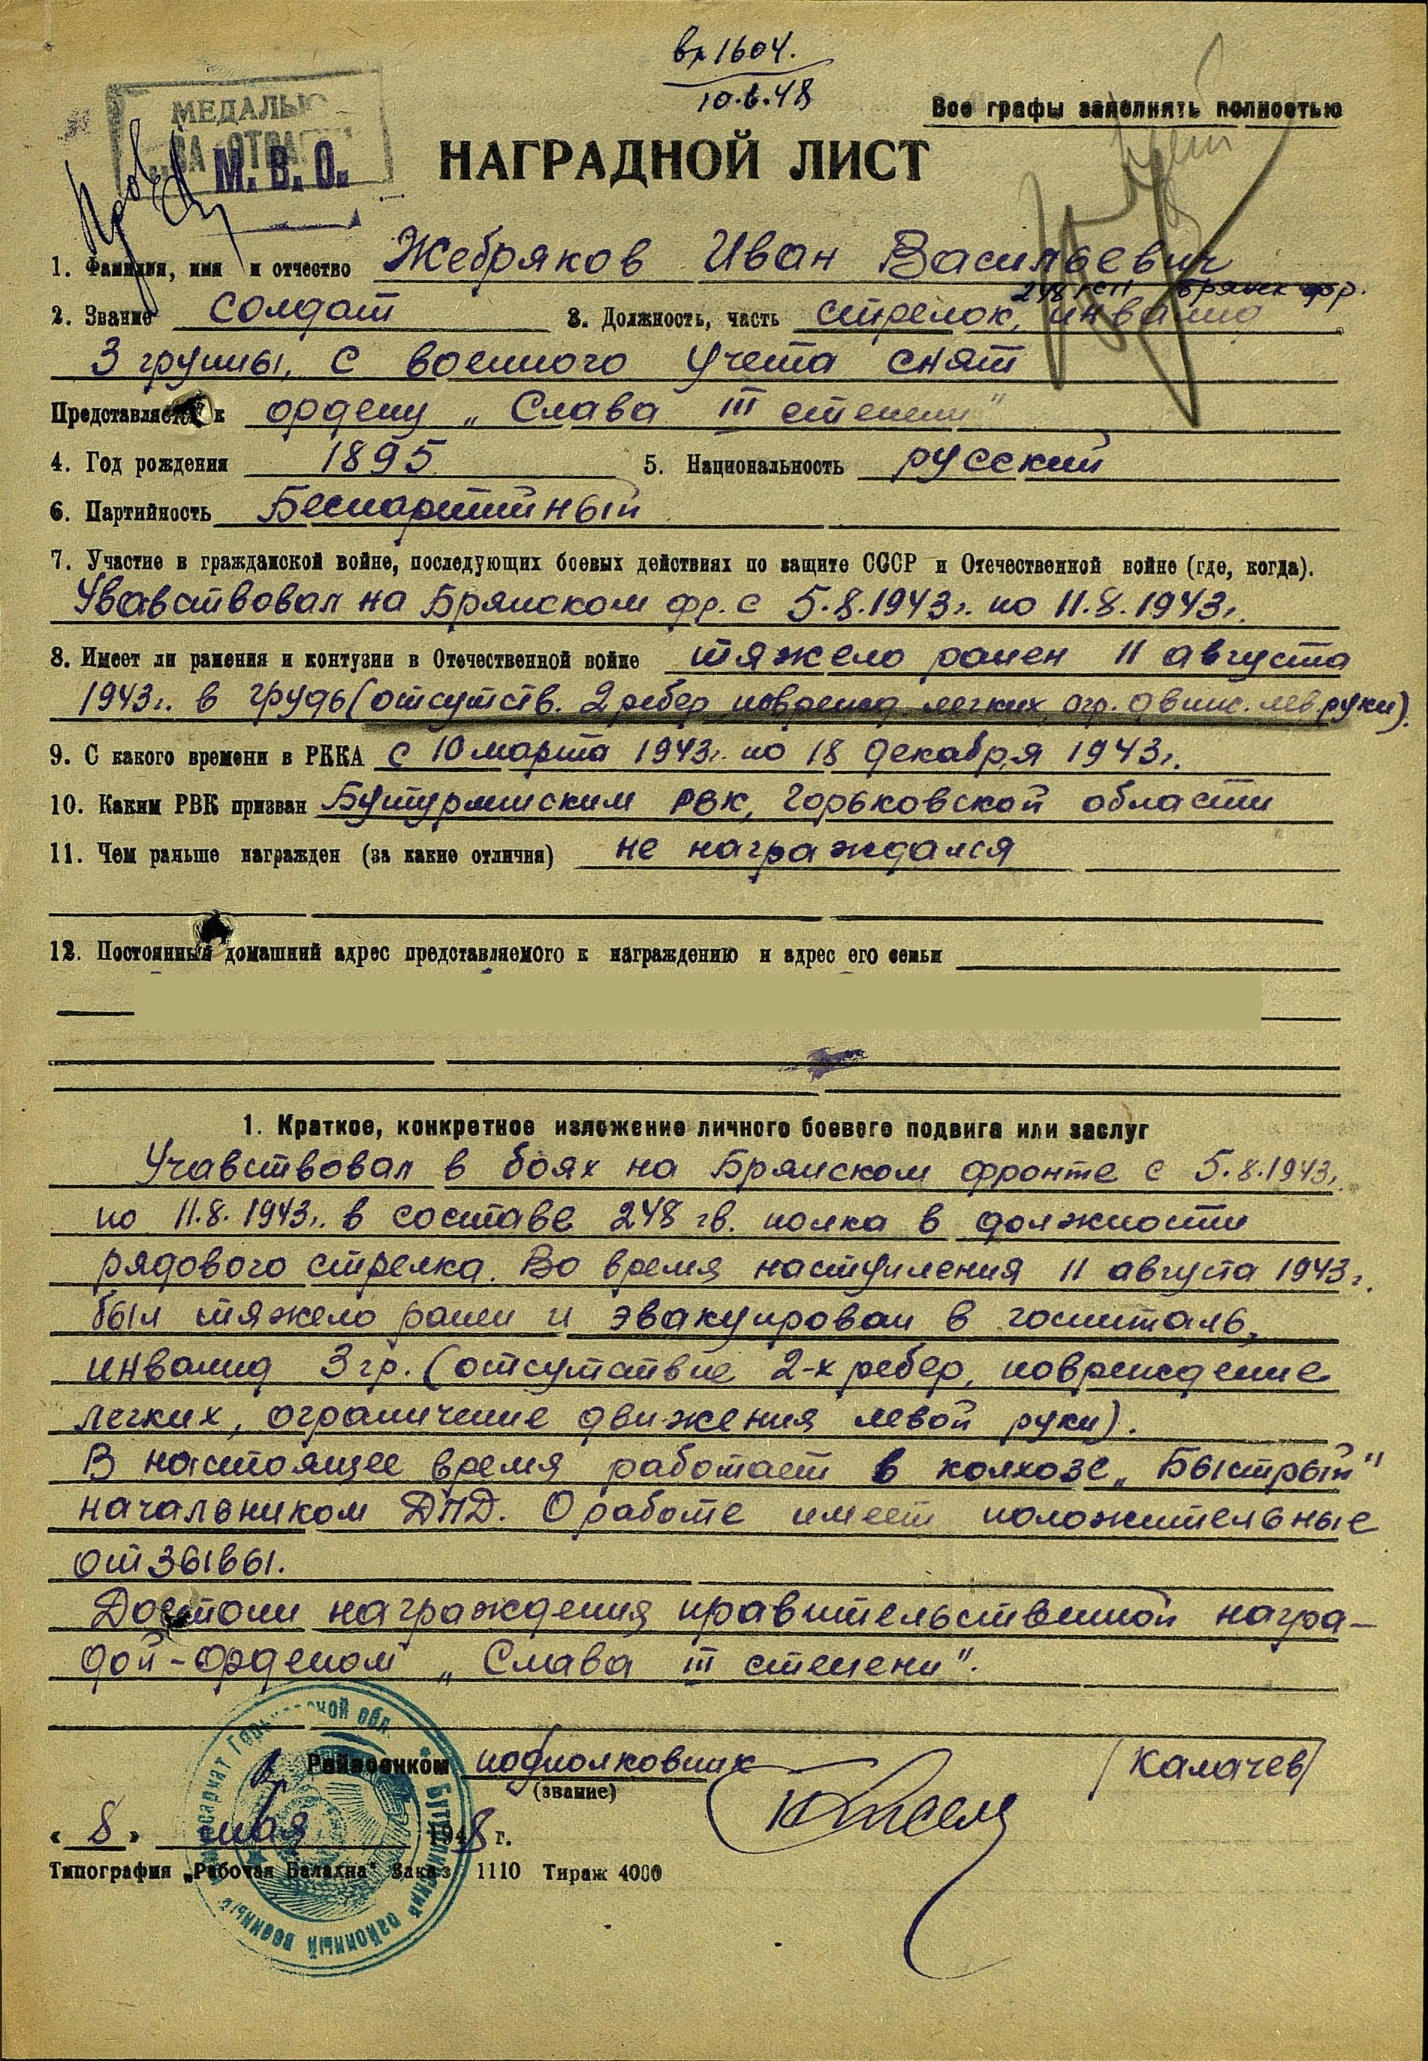 вх 1604.
10.6.48
Все графы заполнять полностью
МЕДАЛЬЮ
„ЗА ОТВАГУ"
М. В. О.
НАГРАДНОЙ ЛИСТ
1. Фамилия, имя и отчество Жебряков Иван Васильевич
248 гсп Брянск фр.
2. Звание солдат 3. Должность, часть стрелок, инвалид
3 группы, с военного учета снят
Представляется к ордену „Слава III степени"
4. Год рождения 1895 5. Национальность русский
6. Партийность Беспартийный
7. Участие в гражданской войне, последующих боевых действиях по защите СССР и Отечественной войне (где, когда).
Увавствовал на Брянском фр. с 5.8.1943г. по 11.8.1943г.
8. Имеет ли ранения и контузии в Отечественной войне тяжело ранен 11 августа
1943г. в грудь (отсутств. 2 ребер, поврежд. легких, огр. движ. лев. руки).
9. С какого времени в РККА с 10 марта 1943г. по 18 декабря 1943г.
10. Каким РВК призван Бутурлинским РВК, Горьковской области
11. Чем раньше награжден (за какие отличия) не награждался
12. Постоянный домашний адрес представляемого к награждению и адрес его семьи
1. Краткое, конкретное изложение личного боевого подвига или заслуг
Учавствовал в боях на Брянском фронте с 5.8.1943г.
по 11.8.1943г. в составе 248 гв. полка в должности
рядового стрелка. Во время наступления 11 августа 1943г.
был тяжело ранен и эвакуирован в госпиталь,
инвалид 3 гр. (отсутствие 2-х ребер, повреждение
легких, ограничение движения левой руки).
В настоящее время работает в колхозе „Быстрый"
начальником ДПД. О работе имеет положительные
отзывы.
Достоин награждения правительственной награ-
дой-орденом „Слава III степени".
Райвоенком подполковник /Калачев/
(звание)
« 8 » мая 1948 г.
Типография „Рабочая Балахна" Заказ 1110 Тираж 4000
Бутурлинский районный военный комиссариат Горьковской обл.